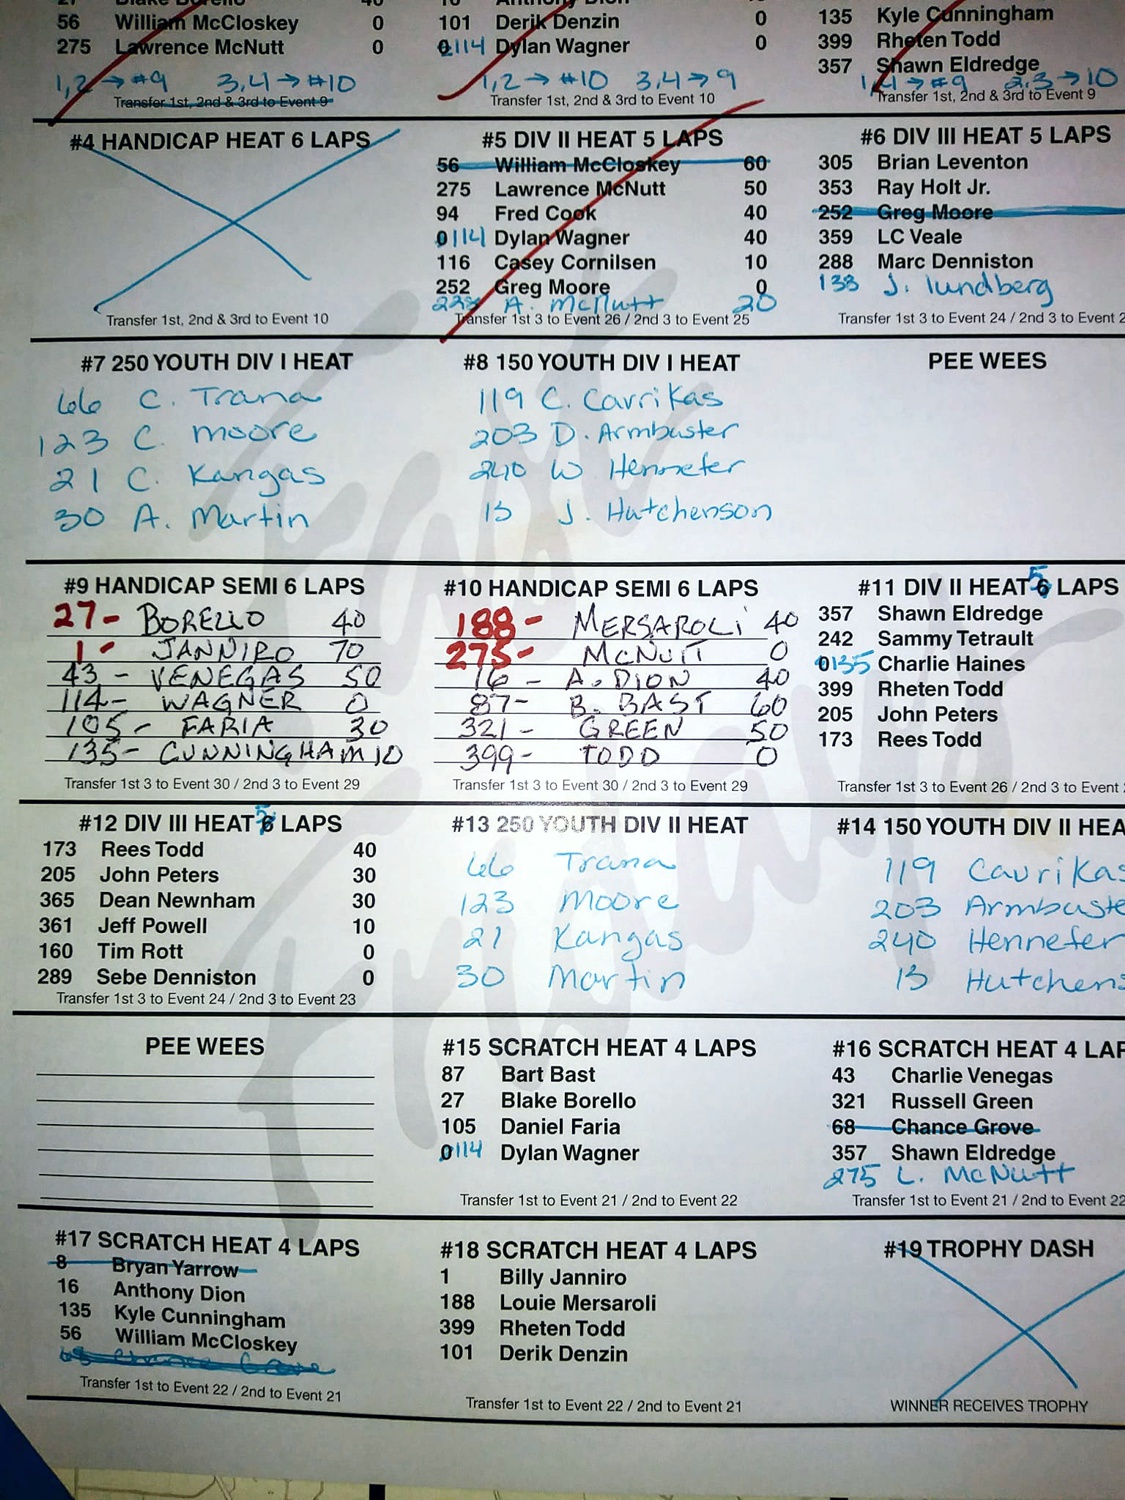 56 William McCloskey 0
275 Lawrence McNutt 0
1,2 → #9 3,4 → #10
Transfer 1st, 2nd & 3rd to Event 9
101 Derik Denzin 0
0114 Dylan Wagner 0
1,2 → #10 3,4 → 9
Transfer 1st, 2nd & 3rd to Event 10
135 Kyle Cunningham
399 Rheten Todd
357 Shawn Eldredge
1,4 → #9 2,3 → 10
Transfer 1st, 2nd & 3rd to Event 9
#4 HANDICAP HEAT 6 LAPS
Transfer 1st, 2nd & 3rd to Event 10
#5 DIV II HEAT 5 LAPS
56 William McCloskey 60
275 Lawrence McNutt 50
94 Fred Cook 40
0114 Dylan Wagner 40
116 Casey Cornilsen 10
252 Greg Moore 0
A. McNutt 20
Transfer 1st 3 to Event 26 / 2nd 3 to Event 25
#6 DIV III HEAT 5 LAPS
305 Brian Leventon
353 Ray Holt Jr.
252 Greg Moore
359 LC Veale
288 Marc Denniston
138 J. lundberg
Transfer 1st 3 to Event 24 / 2nd 3 to Event 2
#7 250 YOUTH DIV I HEAT
66 C. Trana
123 C. Moore
21 C. Kangas
30 A. Martin
#8 150 YOUTH DIV I HEAT
119 C. Cavrikas
203 D. Armbuster
240 W Hennefer
13 J. Hutchenson
PEE WEES
#9 HANDICAP SEMI 6 LAPS
27- BORELLO 40
1- JANNIRO 70
43 - VENEGAS 50
114- WAGNER 0
105- FARIA 30
135- CUNNINGHAM 10
Transfer 1st 3 to Event 30 / 2nd 3 to Event 29
#10 HANDICAP SEMI 6 LAPS
188- MERSAROLI 40
275- MCNUTT 0
16 - A. DION 40
87- B. BAST 60
321- GREEN 50
399- TODD 0
Transfer 1st 3 to Event 30 / 2nd 3 to Event 29
#11 DIV II HEAT 5 6 LAPS
357 Shawn Eldredge
242 Sammy Tetrault
0135 Charlie Haines
399 Rheten Todd
205 John Peters
173 Rees Todd
Transfer 1st 3 to Event 26 / 2nd 3 to Event
#12 DIV III HEAT 5 6 LAPS
173 Rees Todd 40
205 John Peters 30
365 Dean Newnham 30
361 Jeff Powell 10
160 Tim Rott 0
289 Sebe Denniston 0
Transfer 1st 3 to Event 24 / 2nd 3 to Event 23
#13 250 YOUTH DIV II HEAT
66 Trana
123 Moore
21 Kangas
30 Martin
#14 150 YOUTH DIV II HEA
119 Cavrikas
203 Armbuste
240 Hennefer
13 Hutchens
PEE WEES
#15 SCRATCH HEAT 4 LAPS
87 Bart Bast
27 Blake Borello
105 Daniel Faria
0114 Dylan Wagner
Transfer 1st to Event 21 / 2nd to Event 22
#16 SCRATCH HEAT 4 LAP
43 Charlie Venegas
321 Russell Green
68 Chance Grove
357 Shawn Eldredge
275 L. McNutt
Transfer 1st to Event 21 / 2nd to Event 22
#17 SCRATCH HEAT 4 LAPS
8 Bryan Yarrow
16 Anthony Dion
135 Kyle Cunningham
56 William McCloskey
Transfer 1st to Event 22 / 2nd to Event 21
#18 SCRATCH HEAT 4 LAPS
1 Billy Janniro
188 Louie Mersaroli
399 Rheten Todd
101 Derik Denzin
Transfer 1st to Event 22 / 2nd to Event 21
#19 TROPHY DASH
WINNER RECEIVES TROPHY
Fast
Fridays